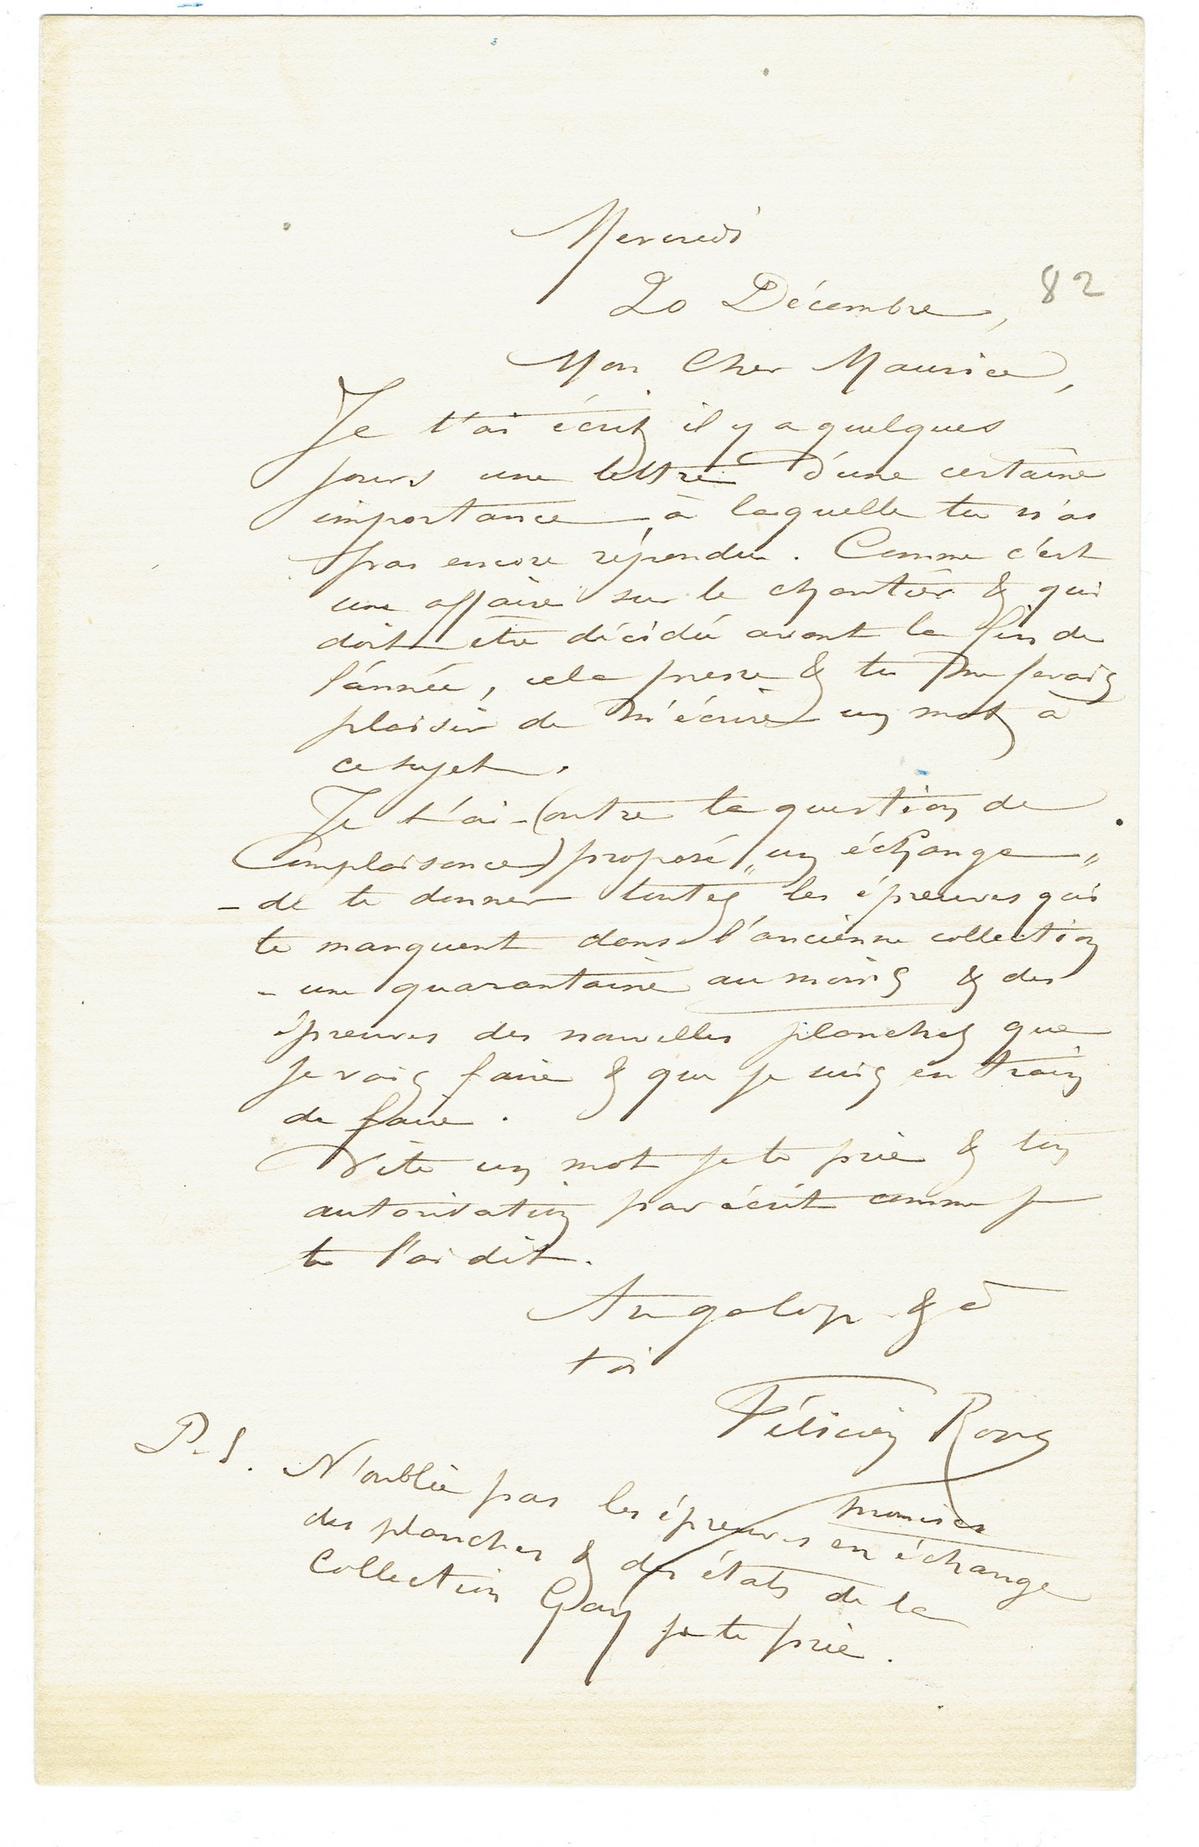 Mercredi
20 Décembre, 82
Mon Cher Maurice,
Je t'ai écrit il y a quelques
jours une lettre d'une certaine
importance à laquelle tu n'as
pas encore répondu. Comme c'est
une affaire sur le chantier & qui
doit être décidée avant la fin de
l'année, cela presse & tu me ferais
plaisir de m'écrire un mot à
ce sujet.
Je t'ai (outre la question de
Complaisance) proposé "un échange"
– de te donner toutes les épreuves qui
te manquent dans l'ancienne collection
– une quarantaine au moins & des
épreuves des nouvelles planches que
je vais faire & que je suis en train
de faire.
Vite un mot je te prie & ton
autorisation par écrit comme je
te l'ai dit.
Au galop & à
toi
Félicien Rops
P.S. N'oublie pas les épreuves promises en échange
des planches & des états de la
Collection Gay je te prie.